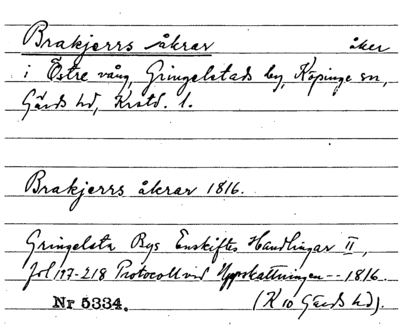 Brakjerrs åkrar åker
i Östre vång, Gringelstads by, Köpinge sn,
Gärds hd, Krstd. l.
Brakjerrs åkrar 1816.
Gringelsta Bys Enskiftes Handlingar II,
fol 197-218 Protocoll vid Uppskattningen -- 1816.
Nr 5334. (K 10 Gärds hd).